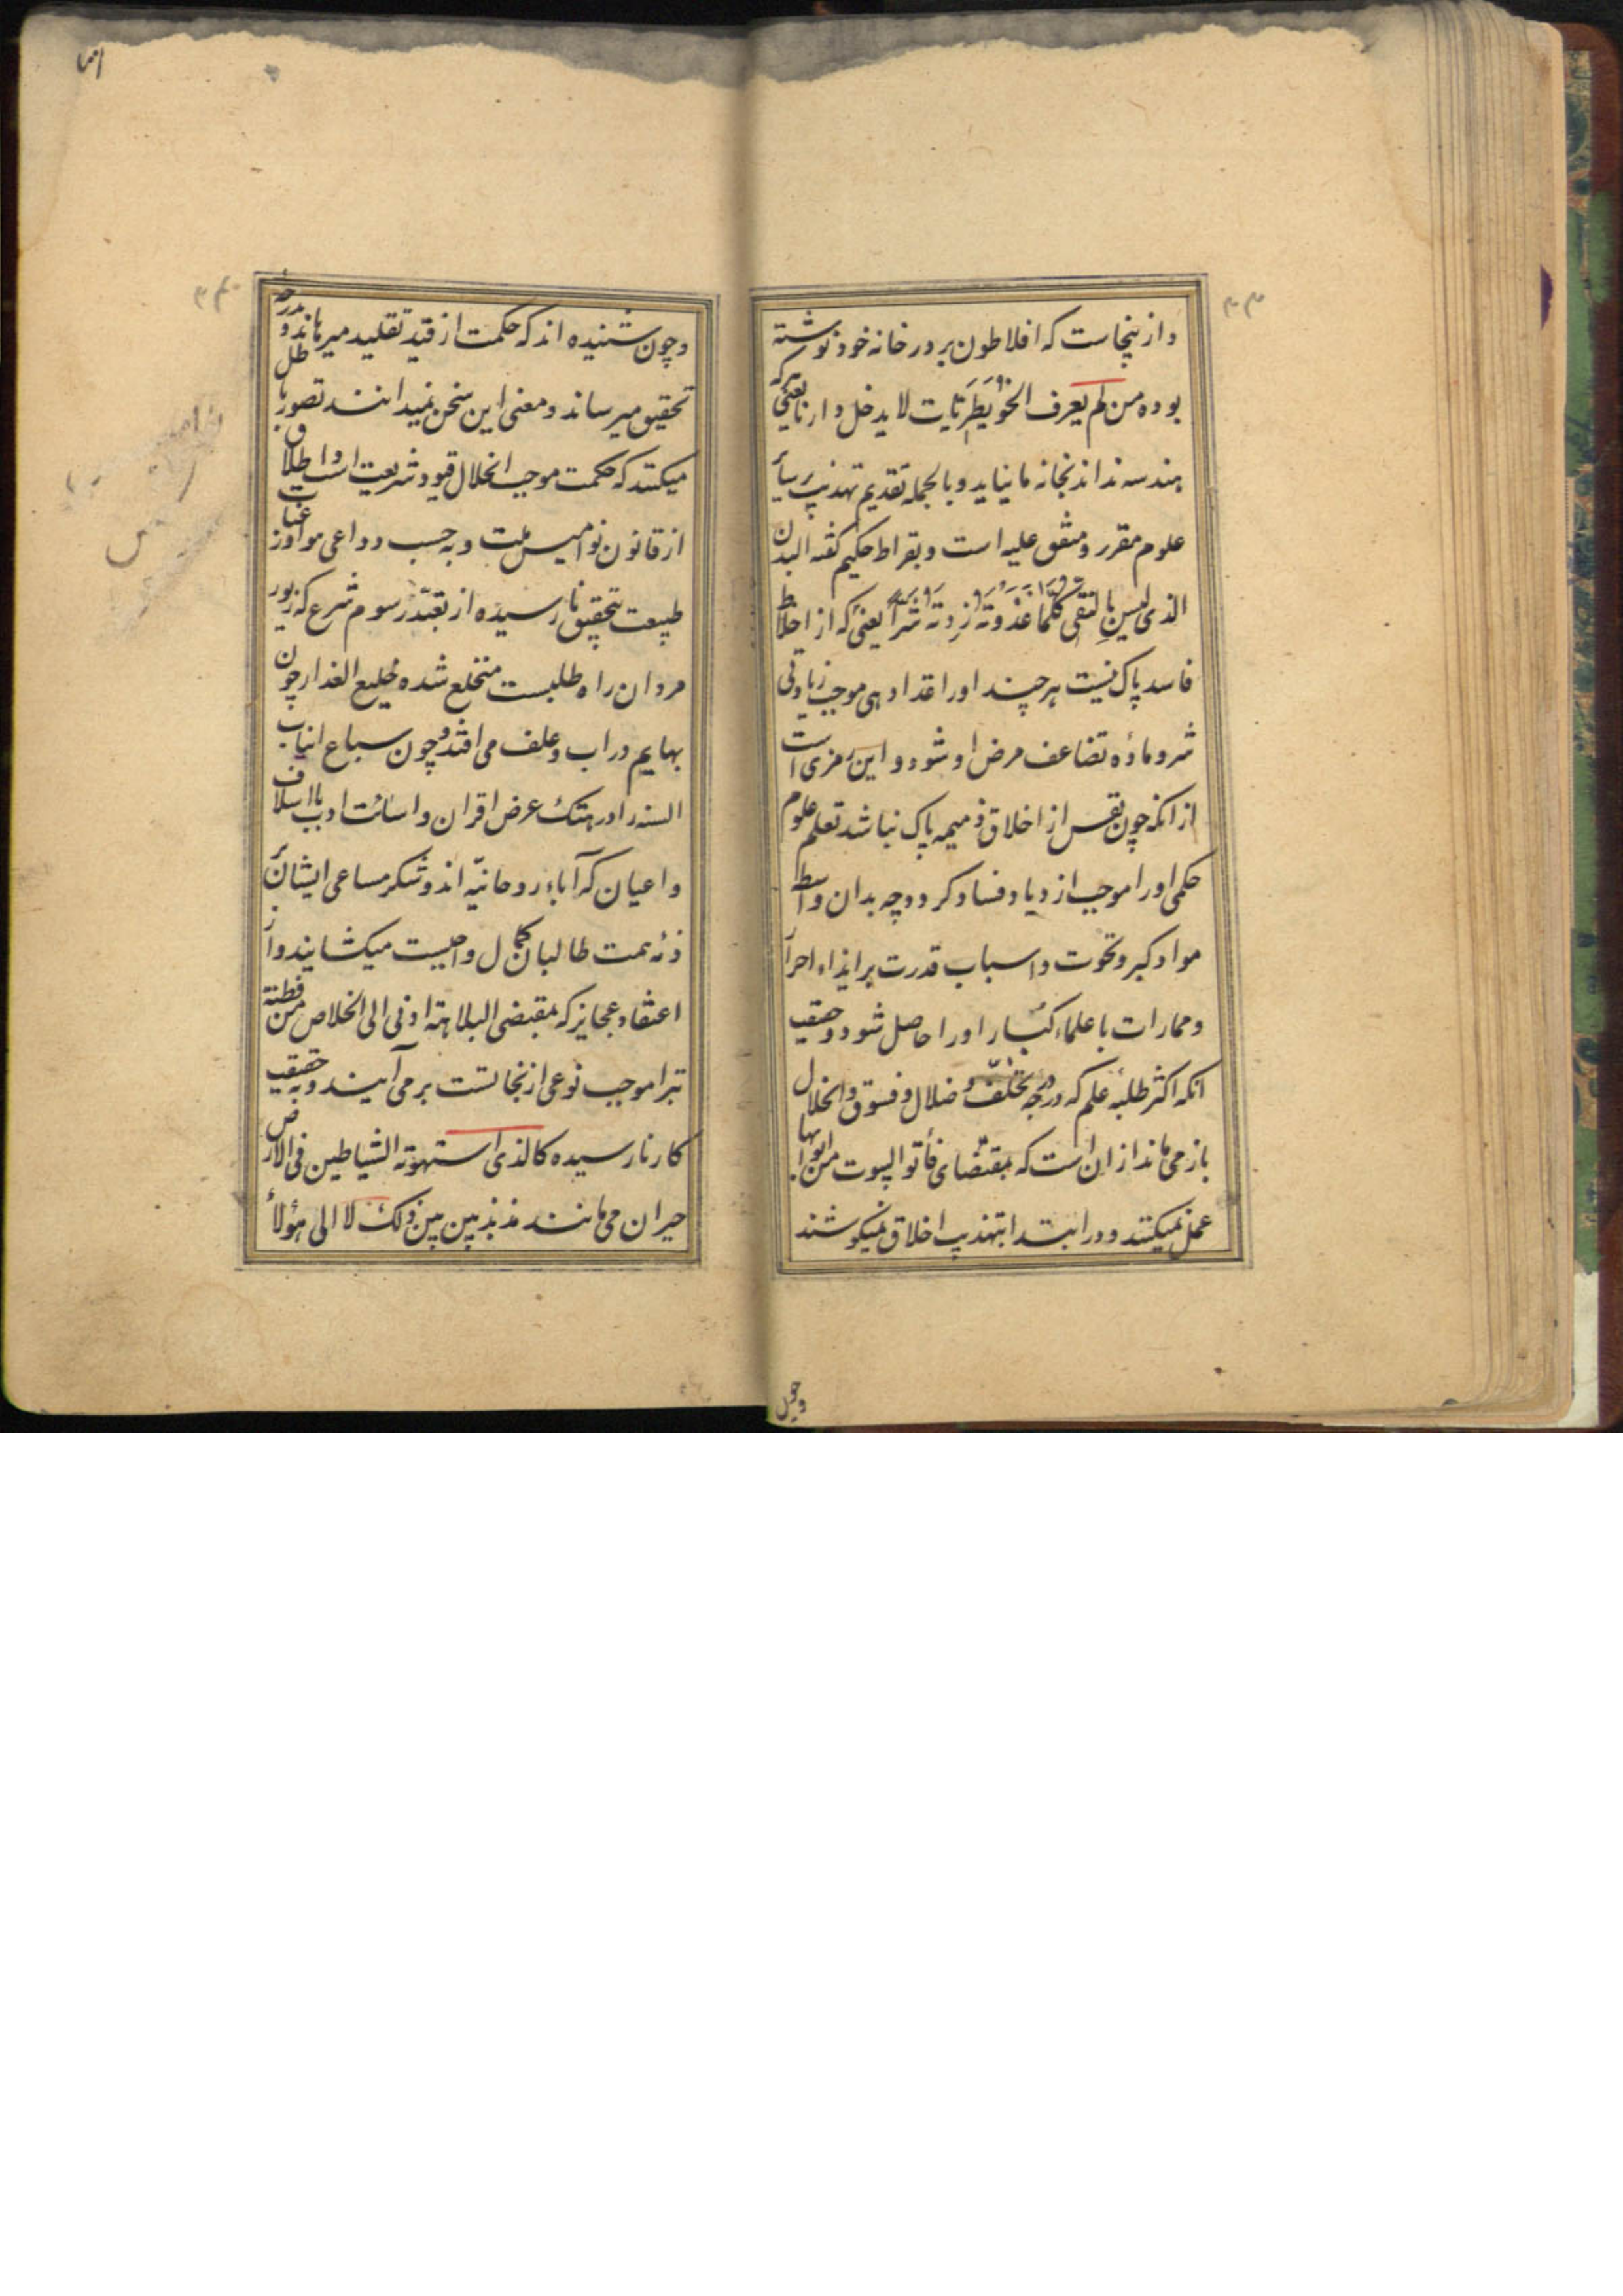 و از ینجاست که افلاطون بر در خانه خود نوشته
بوده من لم یعرف الخویطریات لا یدخل دارنا یعنی هرکه
هندسه نداند بخانه ما نیاید و بالجمله تقدیم تهذیب بر سائر
علوم مقرر و متفق علیه است و بقراط حکیم گفته البدن
الذی لیس بالنقی کلما غذوته زدته شرا یعنی که از اخلاط
فاسد پاک نیست هر چند او را غذا دهی موجب زیادتی
شر و ماده تضاعف مرض او شود و این رمزی است
از انکه چون نفس از اخلاق ذمیمه پاک نباشد تعلم علوم
حکمی او را موجب ازدیاد فساد کردد چه بدان واسطه
مواد کبر و نخوت و اسباب قدرت بر ایذاء احرار
و ممارات با علماء کبار او را حاصل شود و حقیقت
انکه اکثر طلبه علم که در درجه تخلف و ضلال و فسوق و انحلال
باز می ماند از ان است که بمقتضای فأتوا البیوت من ابوابها
عمل نمیکنند و در ابتدا بتهذیب اخلاق نمیکوشند
و چون
و چون شنیده اند که حکمت از قید تقلید میرهاند و بدرجه
تحقیق میرساند و معنی این سخن نمیدانند تصور باطل
میکنند که حکمت موجب انحلال قیود شریعت است و اطلاق
از قانون نوامیس ملت و به حسب دواعی مواد و رغبات
طبیعت بتحقیق نارسیده از تقید رسوم شرع که زیور
مردان راه طلبست منخلع شده خلیع العذار چون
بهایم در اب و علف می افتد و چون سباع انیاب
السنه را در هتک عرض اقران و اسائت ادب با اسلاف
و اعیان که آباء روحانیّه اند و شکر مساعی ایشان بر
ذمه همت طالبان کمال واجبست میکشایند و از
اعتقاد عجایز که بمقتضی البلاهة ادنی الی الخلاص من فطنة
تبرا موجب نوعی از نجاتست بر می آیند و به حقیقت
کار نارسیده کالذی استهوته الشیاطین فی الارض
حیران می مانند مذبذبین بین ذلک لا الی هؤلاء